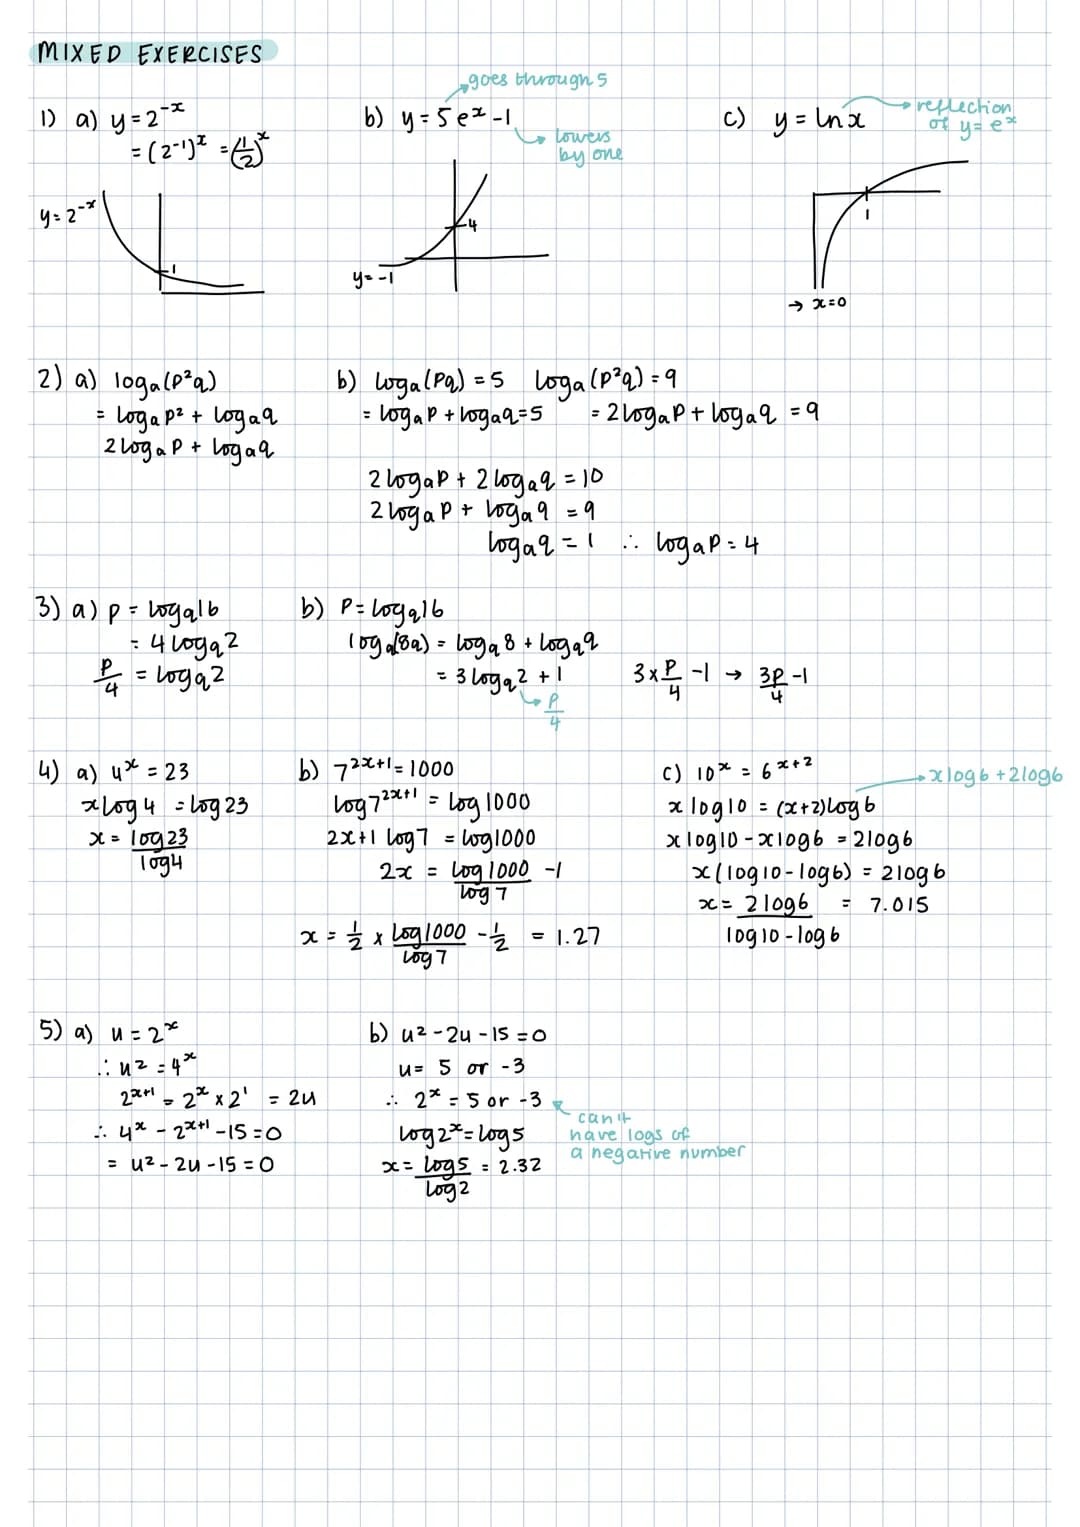 MIXED EXERCISES
1) a) y = 2⁻ˣ
= (2⁻¹)ˣ = (1/2)ˣ
y = 2⁻ˣ
1
goes through 5
b) y = 5eˣ - 1
lowers
by one
4
y = -1
c) y = lnx
reflection
of y = eˣ
1
→ x = 0
2) a) logₐ(p²q)
= logₐp² + logₐq
2logₐp + logₐq
b) logₐ(pq) = 5 logₐ(p²q) = 9
= logₐp + logₐq = 5 = 2logₐp + logₐq = 9
2logₐp + 2logₐq = 10
2logₐp + logₐq = 9
logₐq = 1 ∴ logₐp = 4
3) a) p = log_q16
= 4log_q2
p/4 = log_q2
b) P = log_q16
log_q(8q) = log_q8 + log_qq
= 3log_q2 + 1
p/4
3 x p/4 - 1 → 3p/4 - 1
4) a) 4ˣ = 23
xlog4 = log23
x = log23/log4
b) 7²ˣ⁺¹ = 1000
log7²ˣ⁺¹ = log1000
2x+1 log7 = log1000
2x = log1000/log7 - 1
x = 1/2 x log1000/log7 - 1/2 = 1.27
c) 10ˣ = 6ˣ⁺²
xlog6 + 2log6
xlog10 = (x+2)log6
xlog10 - xlog6 = 2log6
x(log10 - log6) = 2log6
x = 2log6/log10 - log6 = 7.015
5) a) u = 2ˣ
∴ u² = 4ˣ
2ˣ⁺¹ = 2ˣ x 2¹ = 2u
∴ 4ˣ - 2ˣ⁺¹ - 15 = 0
= u² - 2u - 15 = 0
b) u² - 2u - 15 = 0
u = 5 or -3
∴ 2ˣ = 5 or -3
can't
have logs of
a negative number
log2ˣ = log5
x = log5/log2 = 2.32